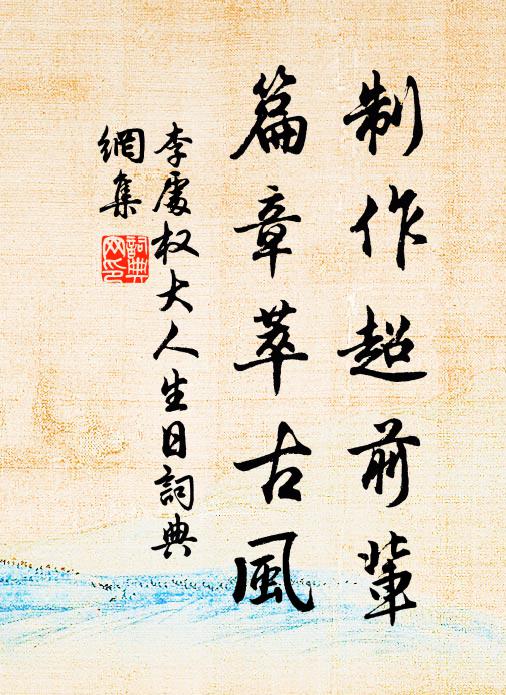 制作超前軰
篇章萃古風
李處权大人生日詞典
網集
詞典
网印